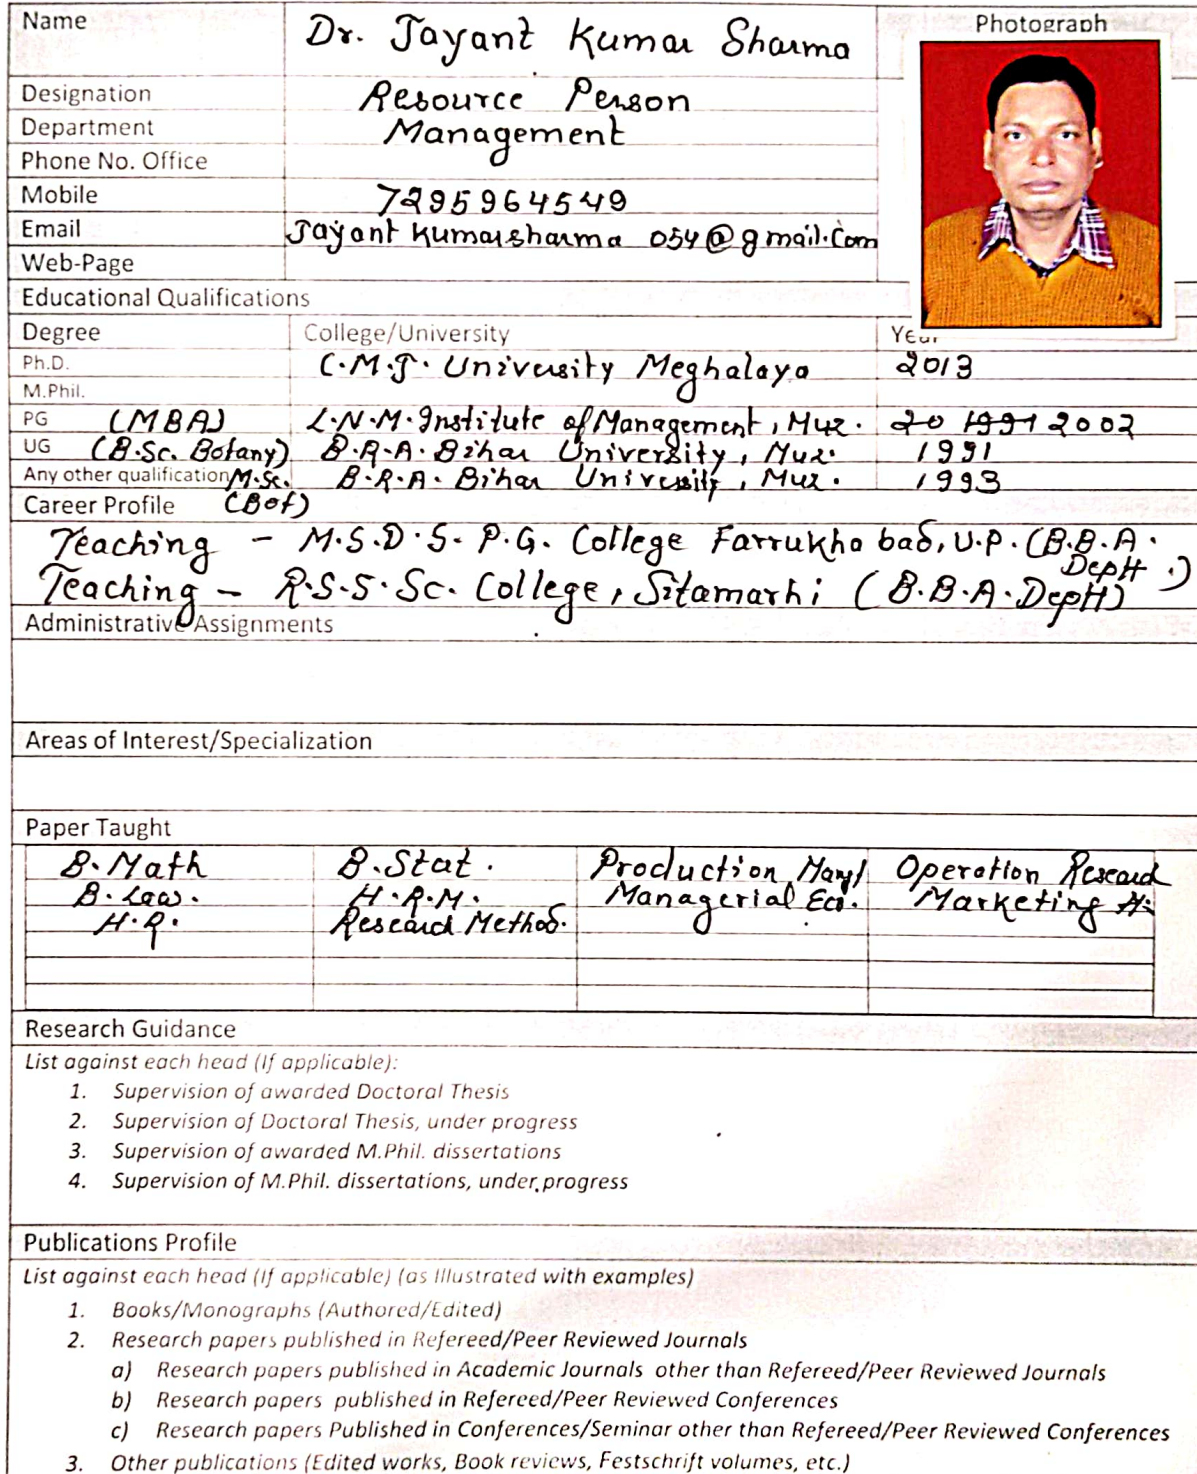 Name Dr. Jayant Kumar Sharma Photograph
Designation Resource Person
Department Management
Phone No. Office
Mobile 7295964549
Email Jayantkumarsharma054@gmail.com
Web-Page
Educational Qualifications
Degree College/University Year
Ph.D. C.M.J. University Meghalaya 2013
M.Phil.
PG (MBA) L.N.M. Institute of Management, Muz. 20 1991 2002
UG (B.Sc. Botany) B.R.A. Bihar University, Muz. 1991
Any other qualification M.Sc. (Bot) B.R.A. Bihar University, Muz. 1993
Career Profile
Teaching - M.S.D.S. P.G. College Farrukhabad, U.P. (B.B.A. Deptt.)
Teaching - R.S.S. Sc. College, Sitamarhi (B.B.A. Deptt)
Administrative Assignments
Areas of Interest/Specialization
Paper Taught
B.Math B.Stat. Production Mang/ Operation Research
B.Law. H.R.M. Managerial Eco. Marketing
H.R. Research Method.
Research Guidance
List against each head (If applicable):
1. Supervision of awarded Doctoral Thesis
2. Supervision of Doctoral Thesis, under progress
3. Supervision of awarded M.Phil. dissertations
4. Supervision of M.Phil. dissertations, under progress
Publications Profile
List against each head (If applicable) (as Illustrated with examples)
1. Books/Monographs (Authored/Edited)
2. Research papers published in Refereed/Peer Reviewed Journals
a) Research papers published in Academic Journals other than Refereed/Peer Reviewed Journals
b) Research papers published in Refereed/Peer Reviewed Conferences
c) Research papers Published in Conferences/Seminar other than Refereed/Peer Reviewed Conferences
3. Other publications (Edited works, Book reviews, Festschrift volumes, etc.)